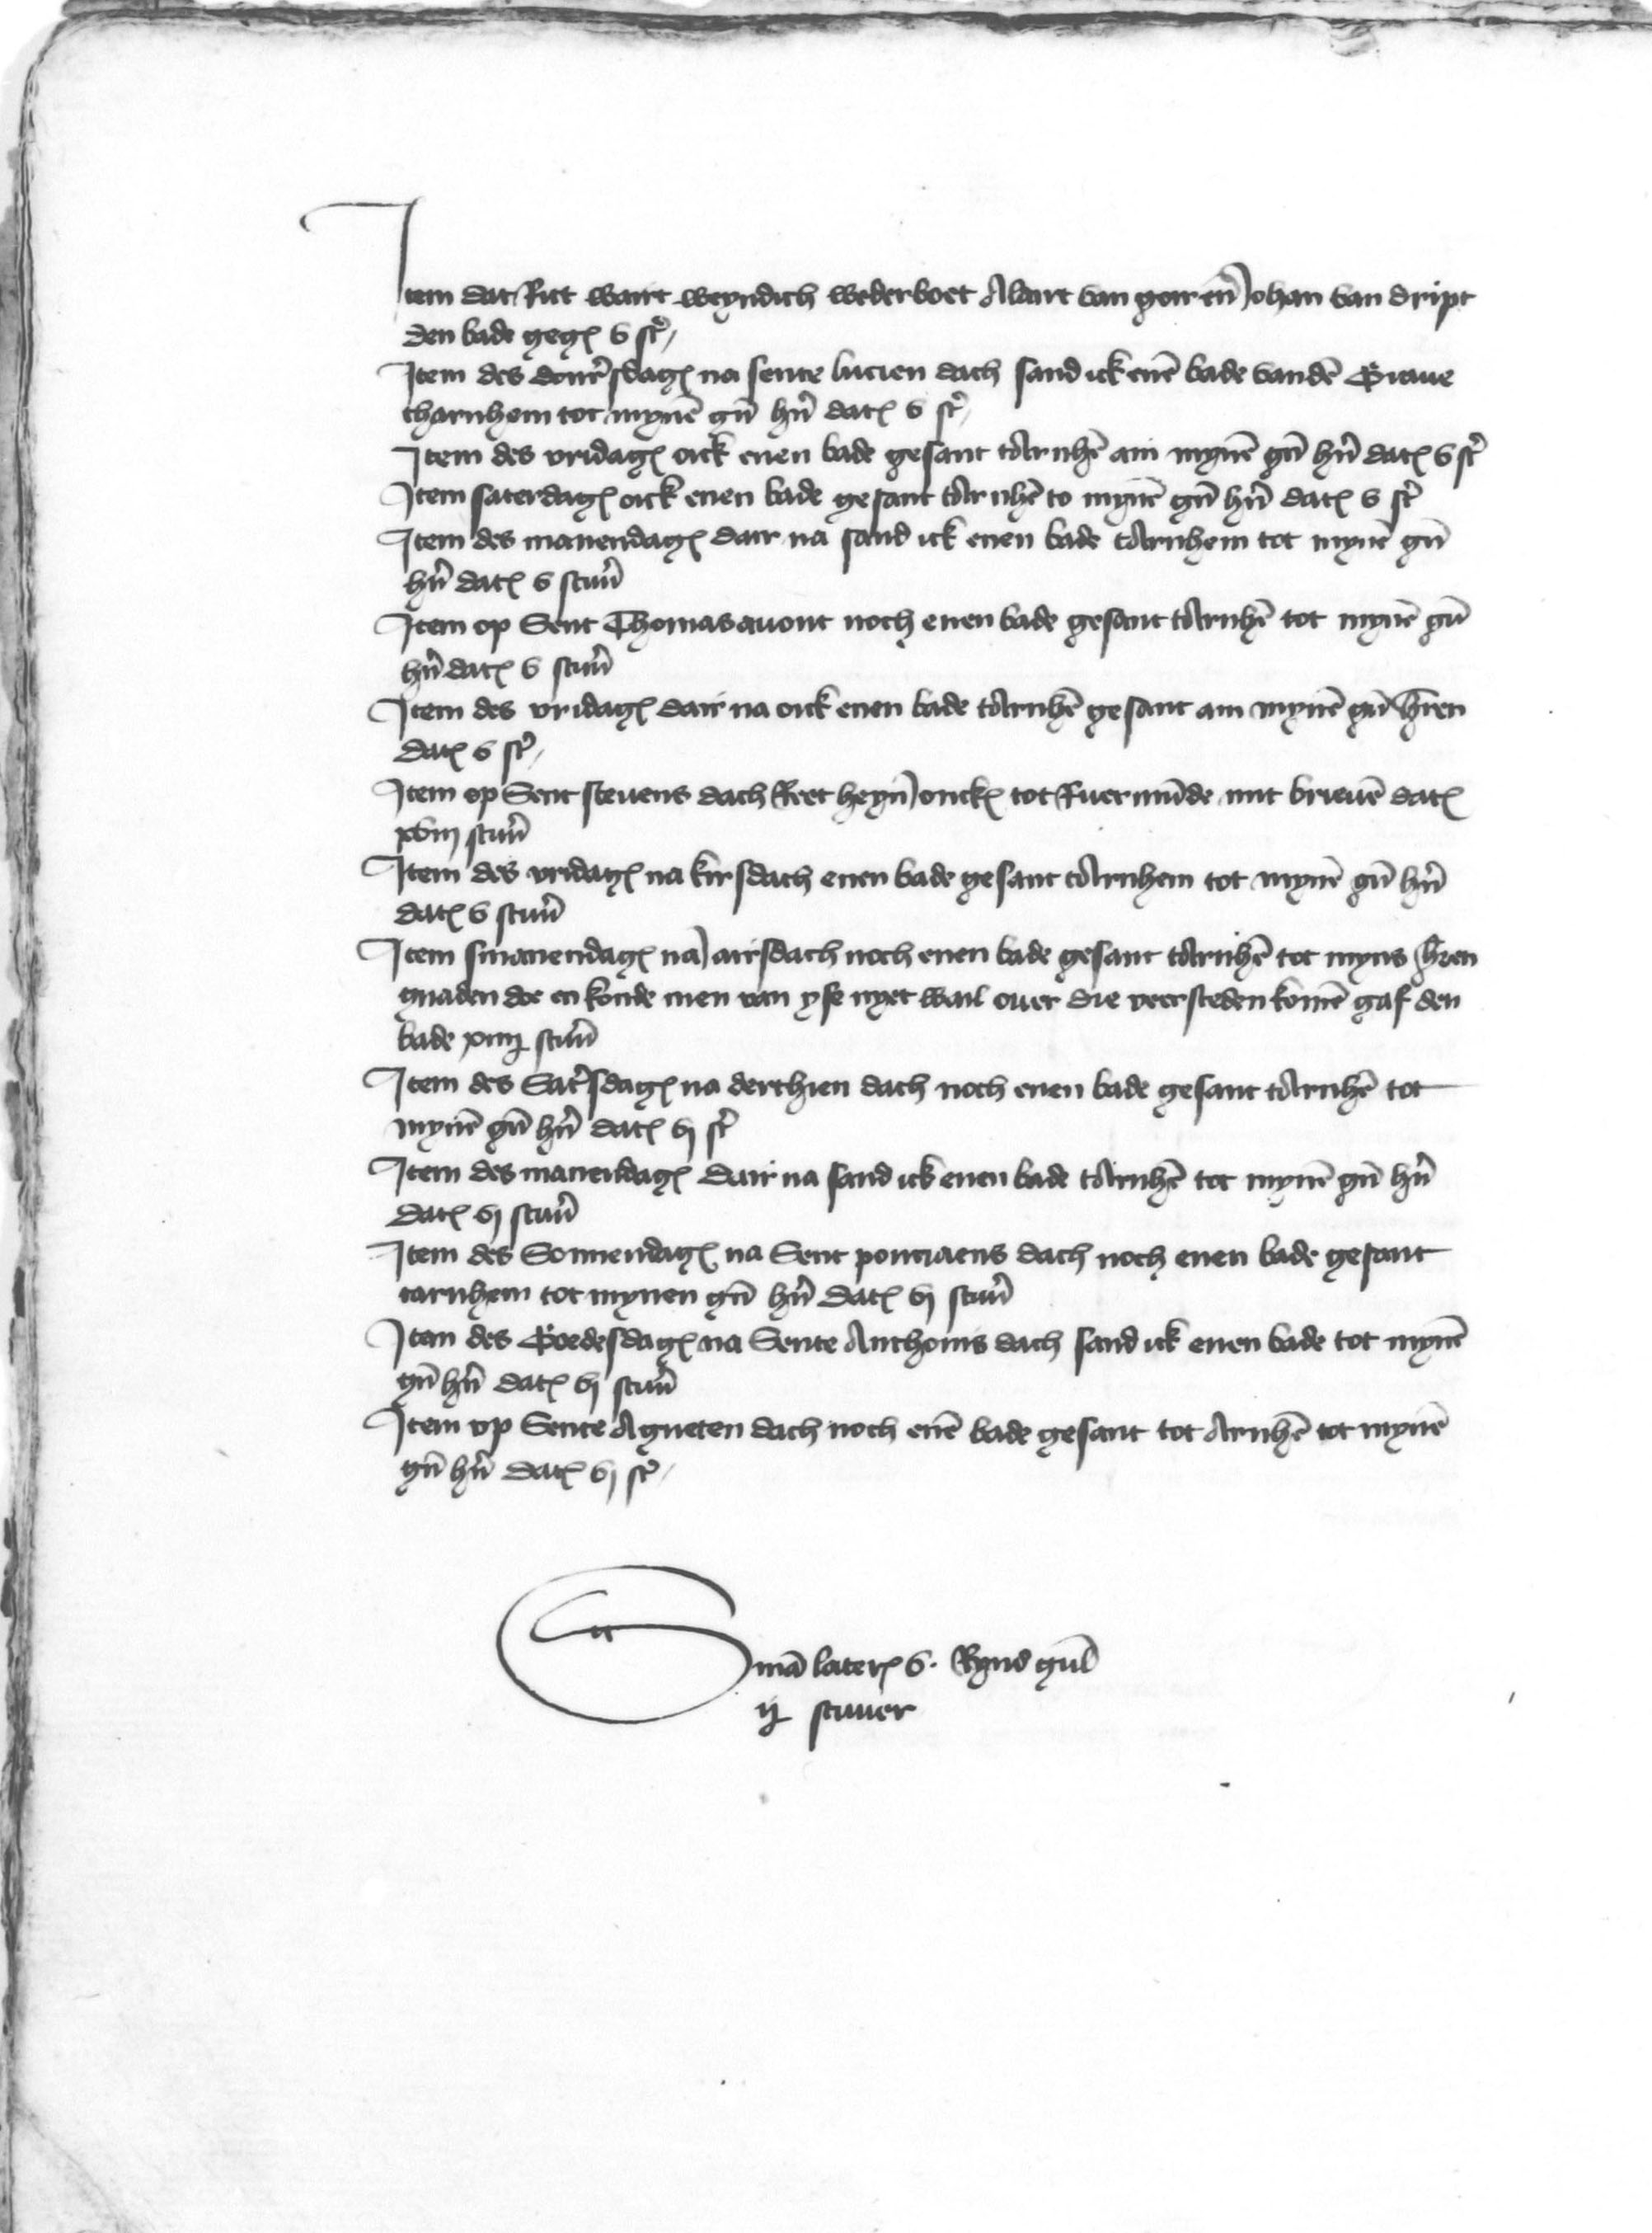 Item dat Ritt wart weyndich wederboet Alart van goir en̄ Johan van dript
den bade gegeꝭ v st̄
Item des donr̄sdagꝭ na sente lucien dach sand ick enē bade vandē Graue
tharnhem tot mynē gn̄ hn̄ datꝭ v st̄
Item des vridagꝭ oick enen bade gesant tArnhē ain mynē gn̄ hn̄ datꝭ v st̄
Item saterdagꝭ oick enen bade gesant tArnhē to mynē gn̄ hn̄ datꝭ v st̄
Item des manendagꝭ dair na sand ick enen bade tArnhem tot mynē gn̄
hn̄ datꝭ v stuū
Item op Sent Thomasauont noch enen bade gesant tArnhē tot mynē gn̄
hn̄ datꝭ v stuū
Item des vridagꝭ dair na oick enen bade tArnhē gesant ain mynē gn̄ h̄ren
datꝭ v st̄
Item op Sent steuens dach Reet heyn Jonckꝭ tot Ruermūde mit brieuē datꝭ
xviij stuū
Item des vridagꝭ na kirsdach enen bade gesant tArnhem tot mynē gn̄ hn̄
datꝭ v stuū
Item smanendagꝭ na Jairsdach noch enen bade gesant tArnhē tot myns h̄ren
gnaden doe en konde men van yse nyet wail ouer die veersteden komē gaf den
bade xiiij stuū
Item des Sat̄sdagꝭ na derthien dach noch enen bade gesant tArnhē tot
mynē gn̄ hn̄ datꝭ vj st̄
Item des manendagꝭ dair na sand ick enen bade tArnhē tot mynē gn̄ hn̄
datꝭ vj stuū
Item des Sonnendagꝭ na Sent ponciaens dach noch enen bade gesant
tarnhem tot mynen gn̄ hn̄ datꝭ vj stuū
Item des Goedesdagꝭ na Sente Anthonis dach sand ick enen bade tot mynē
gn̄ hn̄ datꝭ vj stuū
Item op Sente Agneten dach noch enē bade gesant tot Arnhē tot mynē
gn̄ hn̄ datꝭ vj st̄
Summā laterꝭ v. Rynß gul̄
ij stuuer